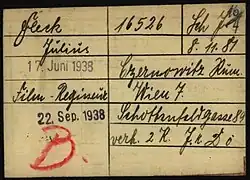 Fleck 16526 Sch Jud
Julius 8.11.81
17. Juni 1938 Czernowitz Rum.
Film-Regisseur Wien 7
22. Sep. 1938 Schottenfeldgasse 84
D. verh. 2 K. J. k. D ö